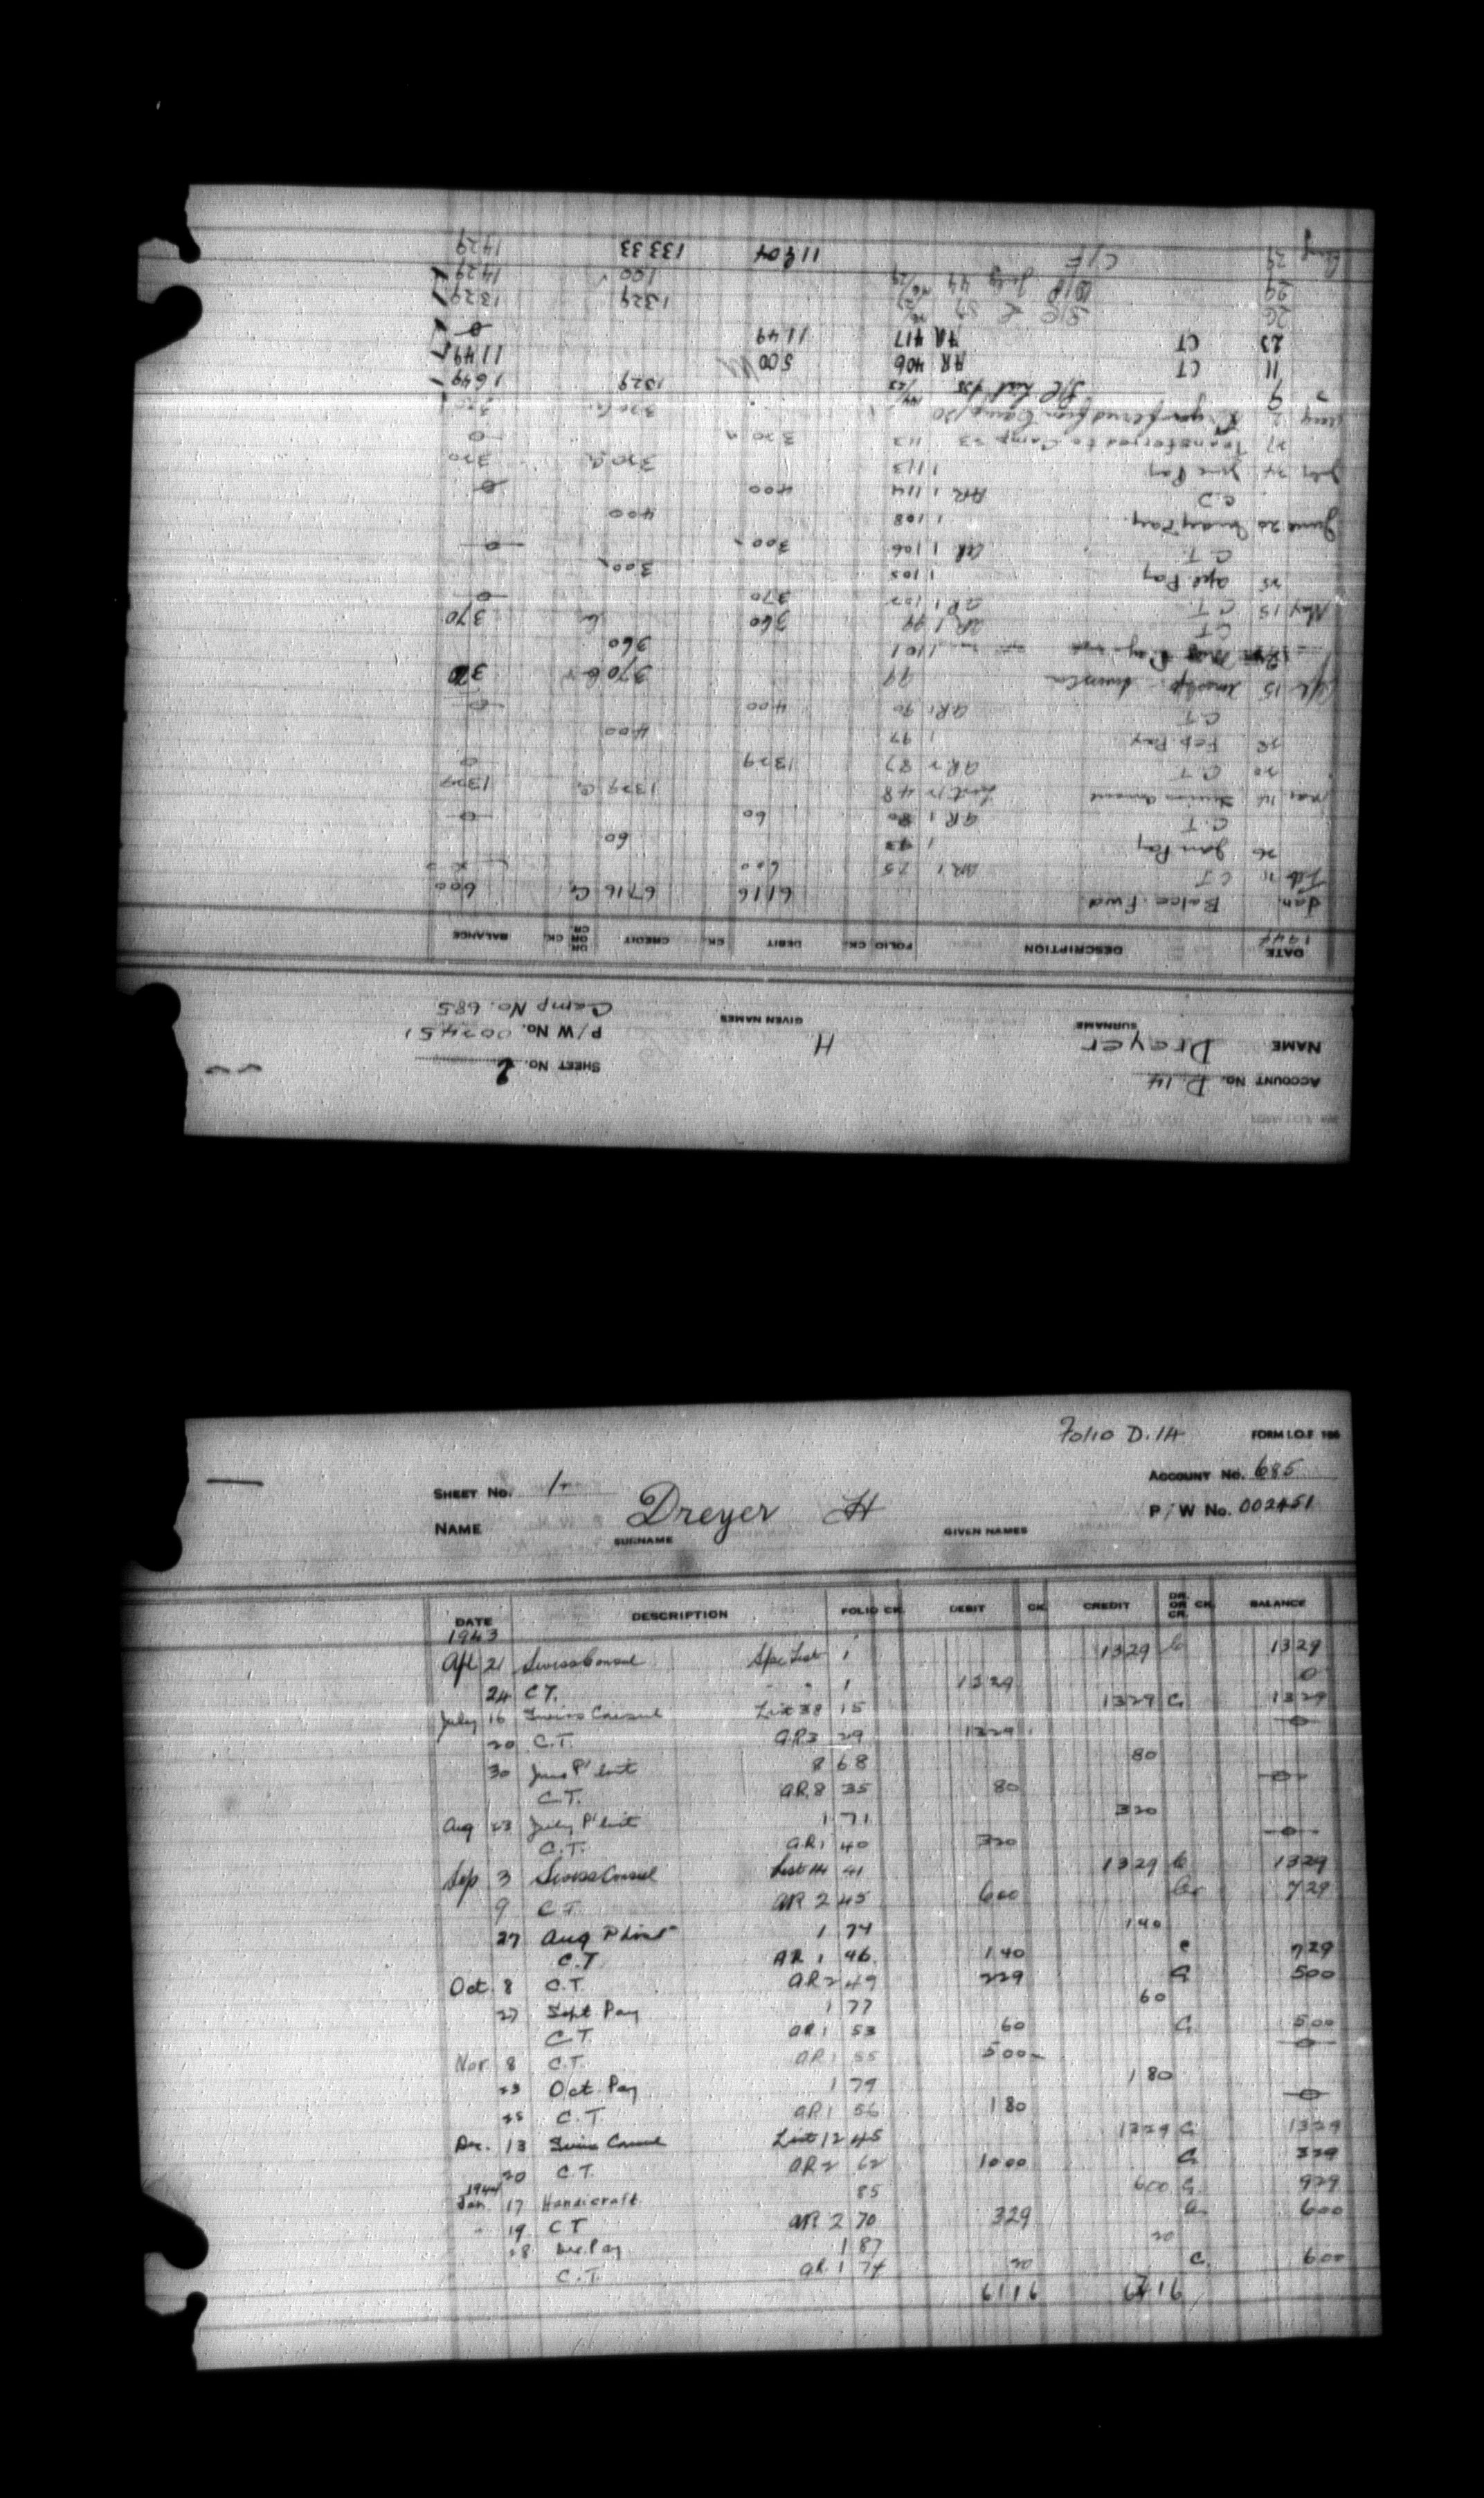 Folio D.14 FORM I.O.F. 166
SHEET No. 1 ACCOUNT No. 685
NAME Dreyer H P/W No. 002451
SURNAME GIVEN NAMES
DATE DESCRIPTION FOLIO CK. DEBIT CK. CREDIT DR. OR CR. CK. BALANCE
1943
Apl 21 Swiss Consul Spe List 1 1329 Cr 1329
24 C.T. " " 1 1329 0
July 16 Swiss Consul List 38 15 1329 Cr 1329
20 C.T. AR3 29 1329 0
30 June P'list 8 68 80
C.T. AR.8 35 80 0
Aug 23 July P'list 1 71 320
C.T. AR1 40 320 0
Sep 3 Swiss Consul List 14 41 1329 Cr 1329
9 C.T. AR 2 45 600 Cr 729
27 Aug P'list 1 74 140
C.T. AR 1 46 140 C 729
Oct. 8 C.T. AR2 49 229 Cr 500
27 Sept Pay 1 77 60
C.T. AR1 53 60 Cr 500
Nov 8 C.T. AR1 55 500 0
23 Oct. Pay 1 79 180
25 C.T. AR1 56 180 0
Dec. 13 Swiss Consul List 12 45 1329 Cr 1329
20 C.T. AR2 62 1000 Cr 329
1944
Jan. 17 Handicraft 85 600 Cr 929
" 19 CT AR 2 70 329 Cr 600
28 Dec. Pay 1 87 20
C.T. AR.1 74 20 C. 600
6116 6716
ACCOUNT No. D.14 SHEET No. 2
NAME Dreyer H P/W No. 002451
SURNAME GIVEN NAMES Camp No. 685
DATE DESCRIPTION FOLIO CK. DEBIT CK. CREDIT DR. OR CR. CK. BALANCE
1944
Jan. Balce. Fwd. 6116 6716 Cr 600
Feb 11 CT AR1 75 600
26 Jan Pay 1 60
C.T. AR1 80 60 0
Mar 14 Swiss Consul List 12 48 1329 Cr 1329
20 C.T. AR2 87 1329 0
28 Feb. Pay 1 97 400
C.T. AR1 90 400 0
Apl 15 99 370 Cr 370
Mar Pay 1 101 360
CT AR1 99 360 Cr 370
May 15 C.T. AR1 102 370 0
25 Apl. Pay 1 105 300
C.T. AR 1 106 300 0
June 20 May Pay 1 108 400
C.T. AR 1 114 400 0
July 24 June Pay 1 113 320 Cr 320
27 Transferred to Camp 33 113 320 0
Aug 2 Transferred from Camp 20 320 Cr 320
9 S/C List 1329 1649
11 CT AR 406 500 1149
23 CT AR 417 1149 0
26 S/C L 57 1329 1329
29 July 44 100 1429
Aug 29 C/F 11904 13333 1429